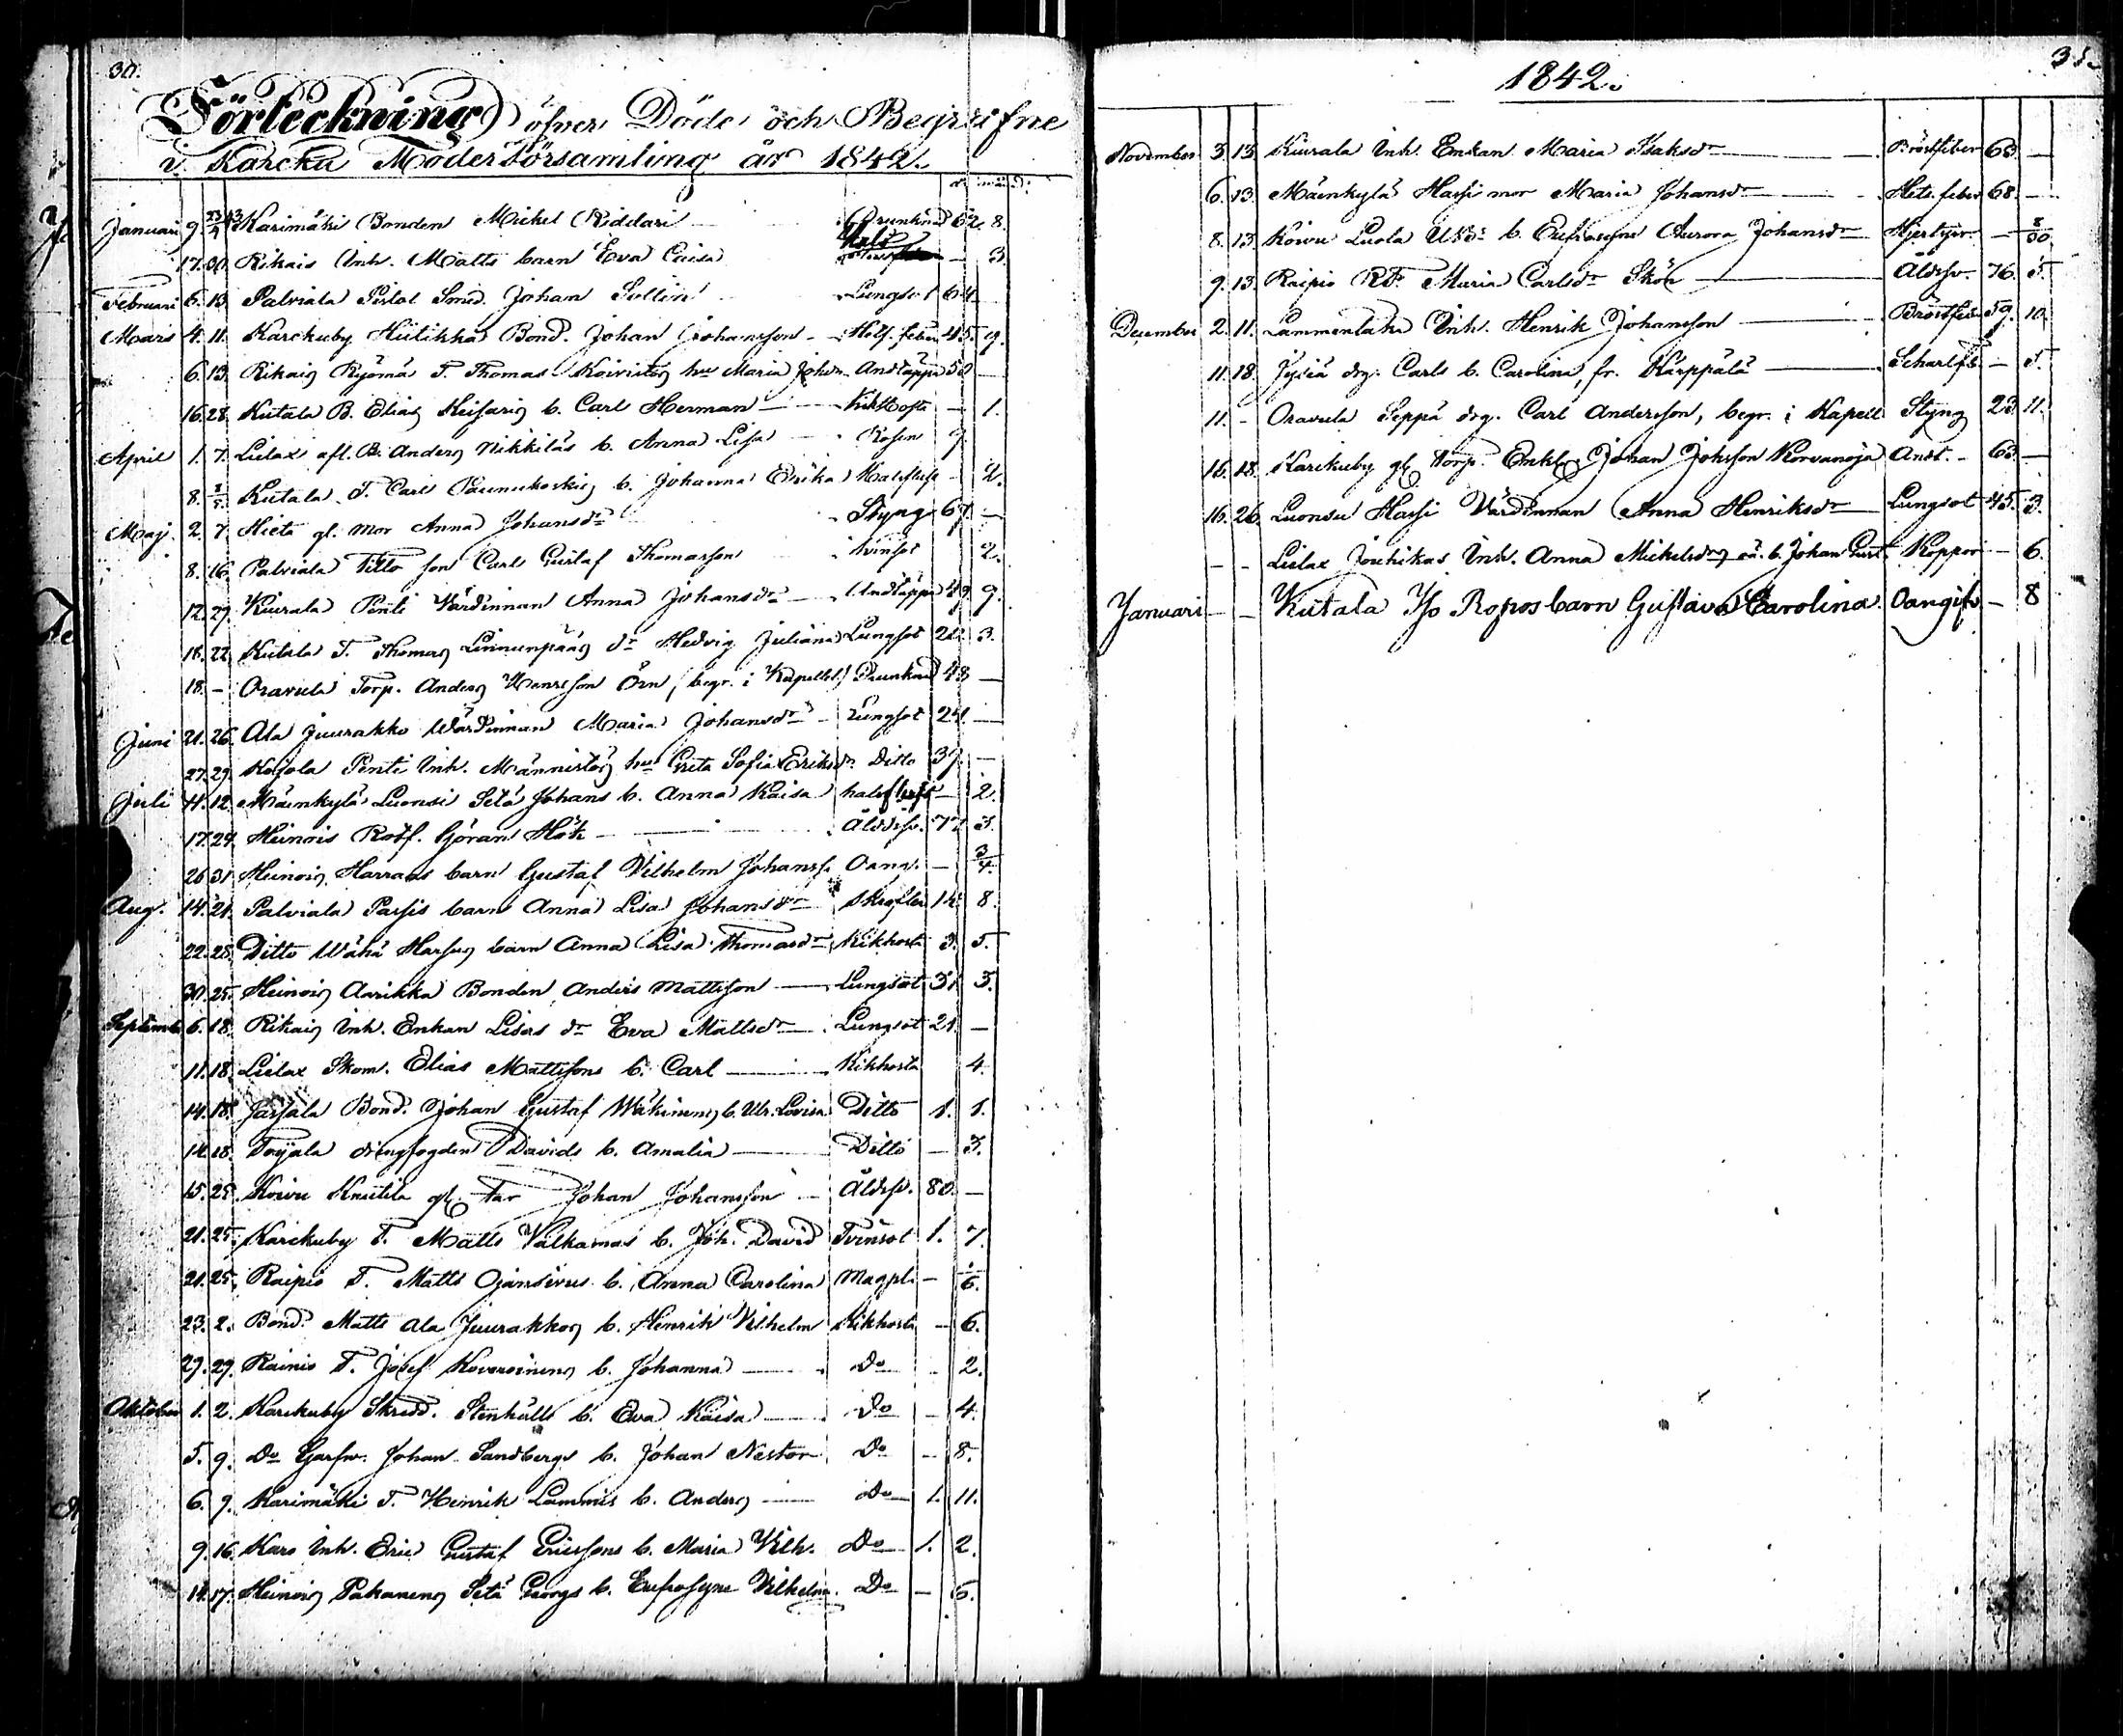 30.
Förteckning öfver Döde och Begrafne
i Karcku Moder Församling år 1842.
Januari 9. 23/1 43 Karimäki Bonden Mickel Riddari Drunknad 62. 8.
17. 30. Rikais Inh. Matts barn Eva Caisa — 3.
Februari 6. 13. Palviala Pistol Smed. Johan Sollin Lungsot 64.
Mars 4. 11. Karckuby Hiitikkä Bond. Johan Johansson Hets. feber 45. 9.
6. 13. Rikais Ryömä T. Thomas Koivistos hu Maria Johdr. Andtäppa 50 —
16. 28. Kutala B. Elias Keisaris b. Carl Herman Kikhosta — 1.
April 1. 7. Lielax afl. B. Anders Nikkiläs b. Anna Lisa Rosen 9.
8. Kutala T. Carl b. Johanna Erika Halsfluss — 2.
Maj 2. 7. Hieta gl. mor Anna Johansdr Styng 67. —
8. 16. Palviala Titto son Carl Gustaf Thomasson Tvinsot 2.
12. 29. Kiurala Pentti Värdinnan Anna Johansdr Andtäppa 49 9.
18. 22. Kutala T. Thomas Linnunpääs dr Hedvig Juliana Lungsot 22. 3.
18. — Oravula Torp. Anders Henrsson Örn, begr. i Kapellet) Drunknad 48 —
Juni 21. 26. Ala Juurakko Wärdinnan Maria Johansdr Lungsot 24. —
27. 29. Kojola Pentti Inh. Männistös hu Greta Sofia Eriksdr. Ditto 39. —
Juli 11. 12. Mäenkylä Luonsi Setä Johans b. Anna Kaisa halsfluss — 2.
17. 24. Heinois Rotf. Göran Hök Åldrsv. 77. 3.
26. 31. Heinois Harraas barn Gustaf Vilhelm Johanss. Oang. — 3/4.
Aug. 14. 21. Palviala Passis barn Anna Lisa Johansdr Skrofler 14. 8.
22. 28. Ditto Wähä Hassus barn Anna Lisa Thomasdr Kikhosta 3. 5.
30. 25. Heinois Aarikka Bonden Anders Mattsson Lungsot 31. 3.
Septemb. 6. 18. Rikais Inh. Enkan Lisas dr Eva Mattsdr Lungsot 21. —
11. 18. Lielax Skom. Elias Mattssons b. Carl Kikhosta 4.
14. 18. Järjälä Bond. Johan Gustaf Wäkinens b. Ulr. Lovisa Ditto 1. 1.
14. 18. Toijala drengfogden Davids b. Amalia Ditto — 3.
15. 25. Koivu Knuutila gl. Far Johan Johansson Åldrsv. 80. —
21. 25. Karckuby T. Matts Valkamas b. Joh. David Tvinsot 1. 7.
21. 25. Raipio T. Matts Ojansivus b. Anna Carolina Magpl. — 1/6.
23. 2. Bond. Matts Ala Juurakkos b. Henrik Vilhelm Kikhosta — 6.
29. 29. Rainio T. Josef b. Johanna Do — 2.
Oktober 1. 2. Karckuby Skredd. Stenhälls b. Eva Kaisa Do — 4.
5. 9. Do Garfv. Johan Sandbergs b. Johan Nestor Do — 8.
6. 9. Karimäki T. Henrik Lammis b. Anders Do 1. 11.
9. 16. Karo Inh. Eric Gustaf Ericssons b. Maria Vilh. Do 1. 2.
14. 17. Heinois Pakanens Setä Georgs b. Eufrosyne Vilhelm. Do — 6.
35.
1842.
November 3. 13. Kiurala Inh. Enkan Maria Isaksdr Bröstfeber 63. —
6. 13. Mäenkylä Hassi mor Maria Johansdr Hets. feber 68. —
8. 13. Koivu Luola b. Eufrosyne Aurora Johansdr — 8/30
9. 13. Raipio Rf. Maria Carlsdr Skön Åldrsv. 76. 5.
December 2. 11. Lammentaka Inh. Henrik Johansson Bröstfeb. 59. 10.
11. 18. drg. Carls b. Carolina, fr. Kärppälä Scharlf. — 5.
11. - Oravula Seppä drg. Carl Andersson, begr. i Kapell Styng 23. 11.
15. 18. Karckuby gl. Torp. Enkl. Johan Johsson Korvanoja Andt. 63. —
16. 26. Luonsu Hassi Värdinnan Anna Henriksdr Lungsot 45. 3.
- - Lielax Inh. Anna Mickelsdrs oä. b. Johan Gust. Koppor — 6.
Januari — — Kutala Iso Ropos barn Gustava Carolina Oangifv. — 8